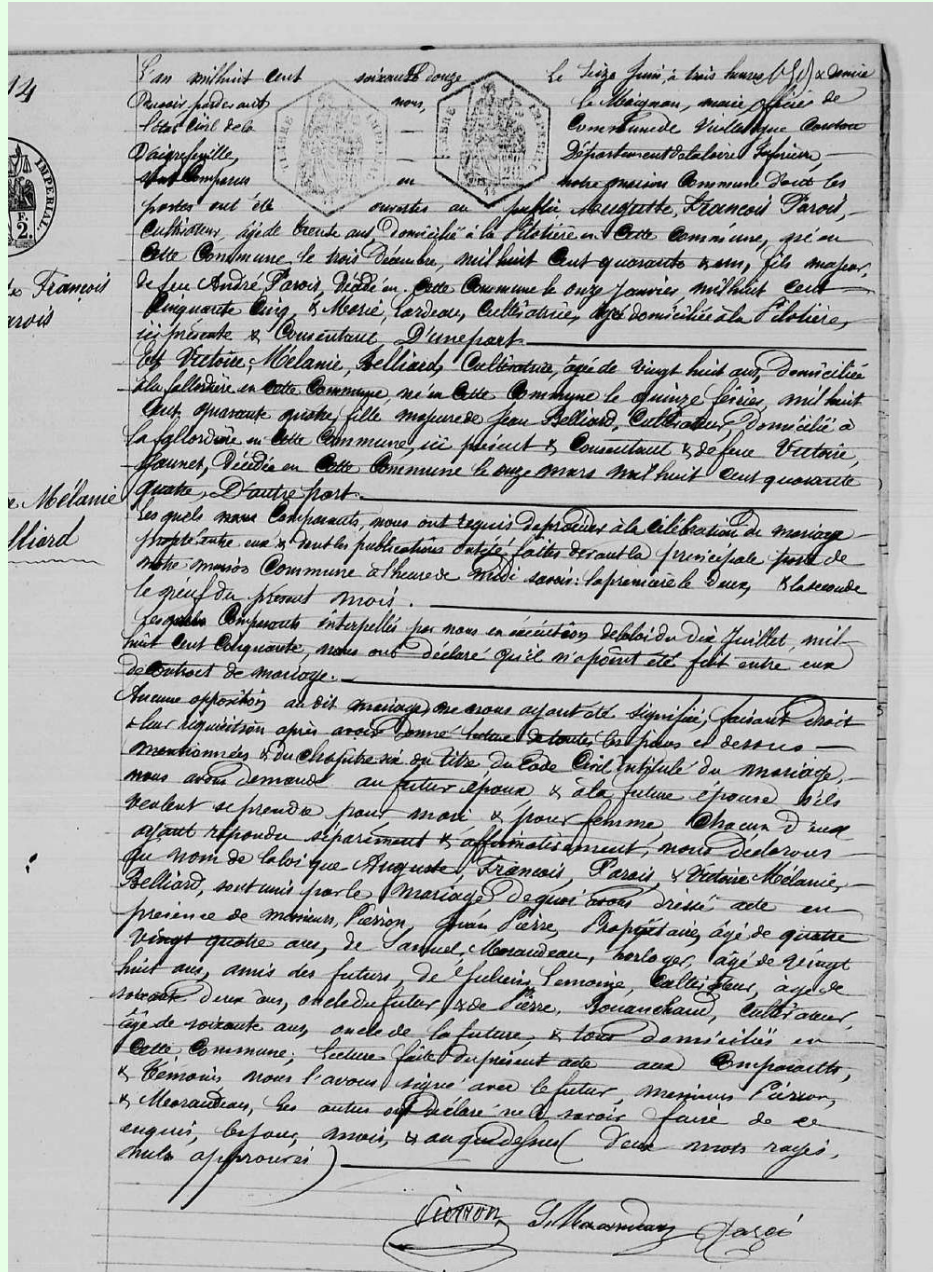 14
L'an mil huit cent soixante douze Le Seize Juin, à trois heures & demie
Pardevant nous, le Meignan, maire officier de
l'état Civil de la Commune de Vieillevigne Canton
D'aigrefeuille, Département de la Loire Inférieure
Sont Comparus en notre maison Commune dont les
portes ont été ouvertes au public Auguste, François Parois,
Cultivateur, âgé de trente ans, domicilié à la Pilotière en Cette Commune, né en
Cette Commune le trois Décembre, mil huit Cent quarante & un, fils majeur,
de feu André Parois, Décédé en Cette Commune le onze Janvier mil huit Cent
Cinquante Cinq, & Marie, Lardeau, Cultivatrice, âgée domiciliée à la Pilotière,
ici présente & Consentant, D'une part.
Et Victoire, Mélanie, Belliard, Cultivatrice, âgée de vingt huit ans, domiciliée
à la fallordière en Cette Commune, né en Cette Commune le quinze février, mil huit
Cent quarante quatre, fille majeure de Jean Belliard, Cultivateur, domicilié à
la fallordière en Cette Commune, ici présent & Consentant & de feue Victoire,
Jaunet, Décédée en Cette Commune le onze mars mil huit Cent quarante
quatre, D'autre part.
Les quels Comparants, nous ont requis de procéder à la Célébration du mariage
projeté entre eux & dont les publications ont été faites devant la principale porte de
notre maison Commune à l'heure de midi savoir: la première le Deux, & la seconde
le neuf du présent mois.
Lesquels Comparants interpellés par nous en exécution de la loi du Dix Juillet, mil
huit Cent Cinquante, nous ont déclaré qu'il n'a point été fait entre eux
de Contrat de mariage.
Aucune opposition au dit mariage ne nous ayant été signifiée, faisant droit
à leur réquisition après avoir Donné lecture de toutes les pièces ci dessus
mentionnées & du Chapitre six du titre du Code Civil intitulé du mariage,
nous avons demandé au futur époux & à la future épouse s'ils
veulent se prendre pour mari & pour femme, Chacun D'eux
ayant répondu séparément & affirmativement, nous Déclarons
au nom de la loi que Auguste, François, Parois, & Victoire Mélanie,
Belliard, sont unis par le mariage De quoi avons Dressé acte en
présence de messieurs, Pierron, Pierre, Propriétaire, âgé de quatre
vingt quatre ans, de Morandeau, horloger, âgé de vingt
huit ans, amis des futurs, de Julien, Lemoine, Cultivateur, âgé de
soixante deux ans, oncle du futur & de Pierre, Bouanchaud, Cultivateur,
âgé de soixante ans, oncle de la future, & tous domiciliés en
Cette Commune, lecture faite du présent acte aux Comparants,
& témoins nous l'avons signé avec le futur, messieurs Pierron,
& Morandeau, les autres ont Déclaré ne le savoir faire de ce
enquis, les jour, mois, & an que dessus (Deux mots rayés,
nuls approuvés)
Pierron S. Morandeau Parois
TIMBRE IMPERIAL
TIMBRE IMPERIAL
IMPERIAL
F.
2.
François
arois
Mélanie
lliard